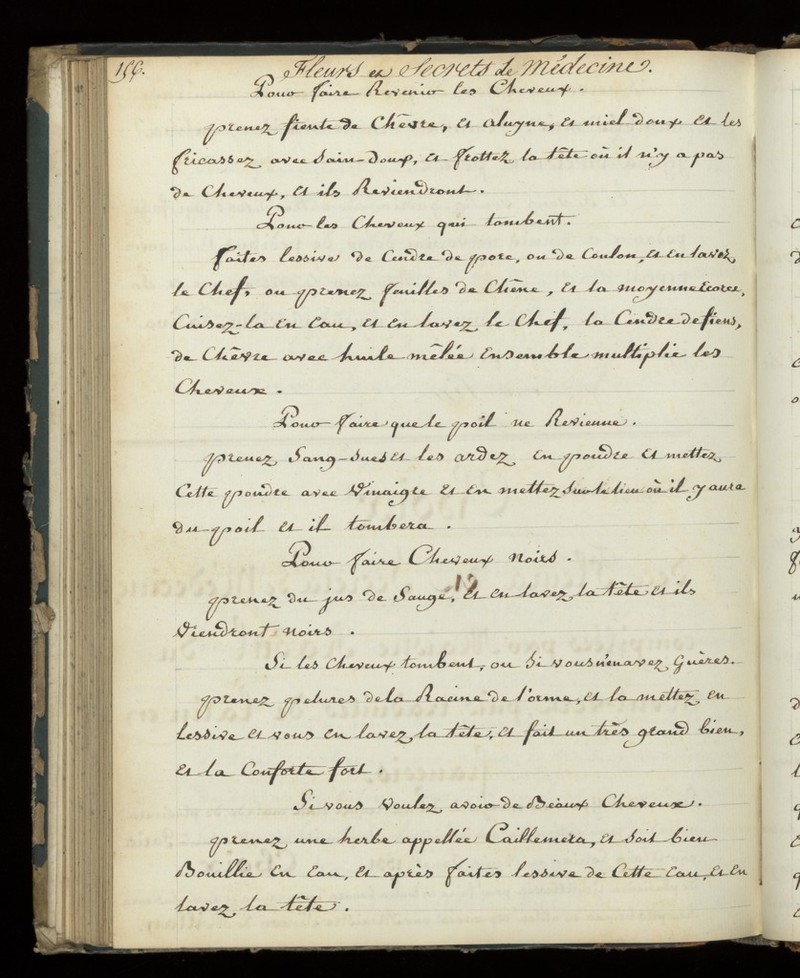 156.
Fleurs et Secrets de Médecine.
Pour faire Revenir les Cheveux.
prenez fiente de Chêvre, et aluyne, et miel doux et les
fricassez avec Sain-doux, et frottez la tête où il n'y a pas
de Cheveux, et ils Reviendront.
Pour les Cheveux qui tombent.
faites lessive de Cendre de pore, ou de Coulon, et en lavez
le Chef, ou prenez feuilles de Chêne, et la moyenne Ecorce,
Cuisez-la en eau, et en lavez le Chef, la Cendre de fiens,
de Chêvre avec huile mêlée ensemble multiplie les
Cheveux.
Pour faire que le poil ne Revienne.
prenez Sang-sues et les ardez en poudre et mettez
Cette poudre avec Vinaigre et en mettez sur le lieu où il y aura
du poil et il tombera.
Pour faire Cheveux noirs.
prenez du jus de Sauge, et en lavez la tête et ils
Viendront noirs.
Si les Cheveux tombent, ou Si vous n'en avez Guères.
prenez pelures de la Racine de l'orme, et la mettez en
lessive et vous en lavez la tête, et fait un très grand bien,
et la Conforte fort.
Si vous Voulez avoir de Beaux Cheveux.
prenez une herbe appellée Caillemera, et Soit bien
Bouillie en eau, et après faites lessive de Cette eau, et en
lavez la tête.